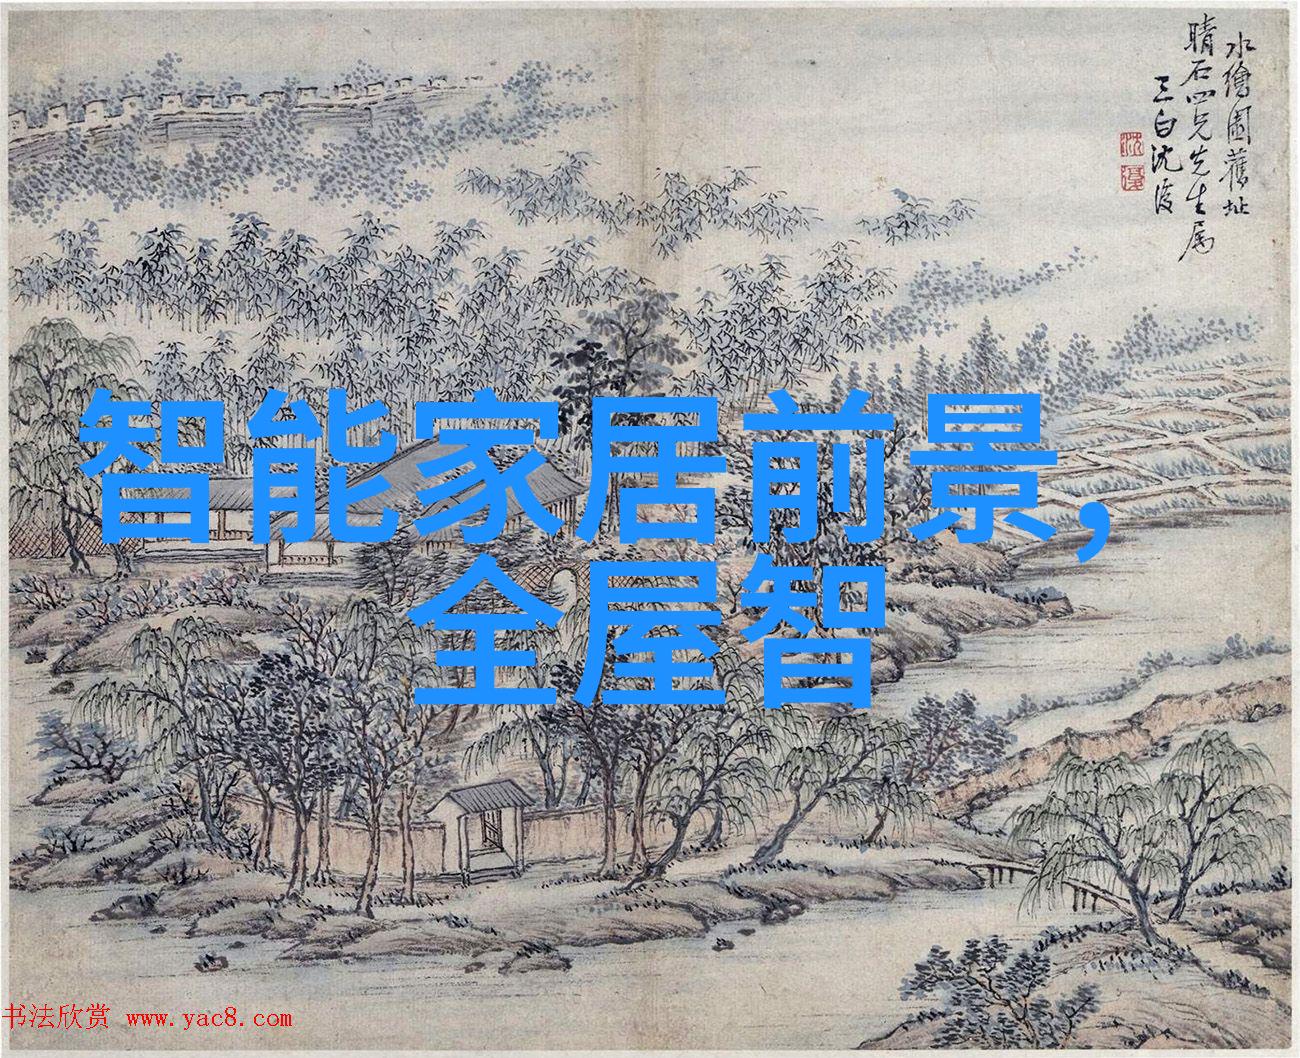 水繪園舊址
晴石四兄先生属
三白沈復
沈
復
智能家居前景,
全屋智
书法欣赏 www.yac8.com